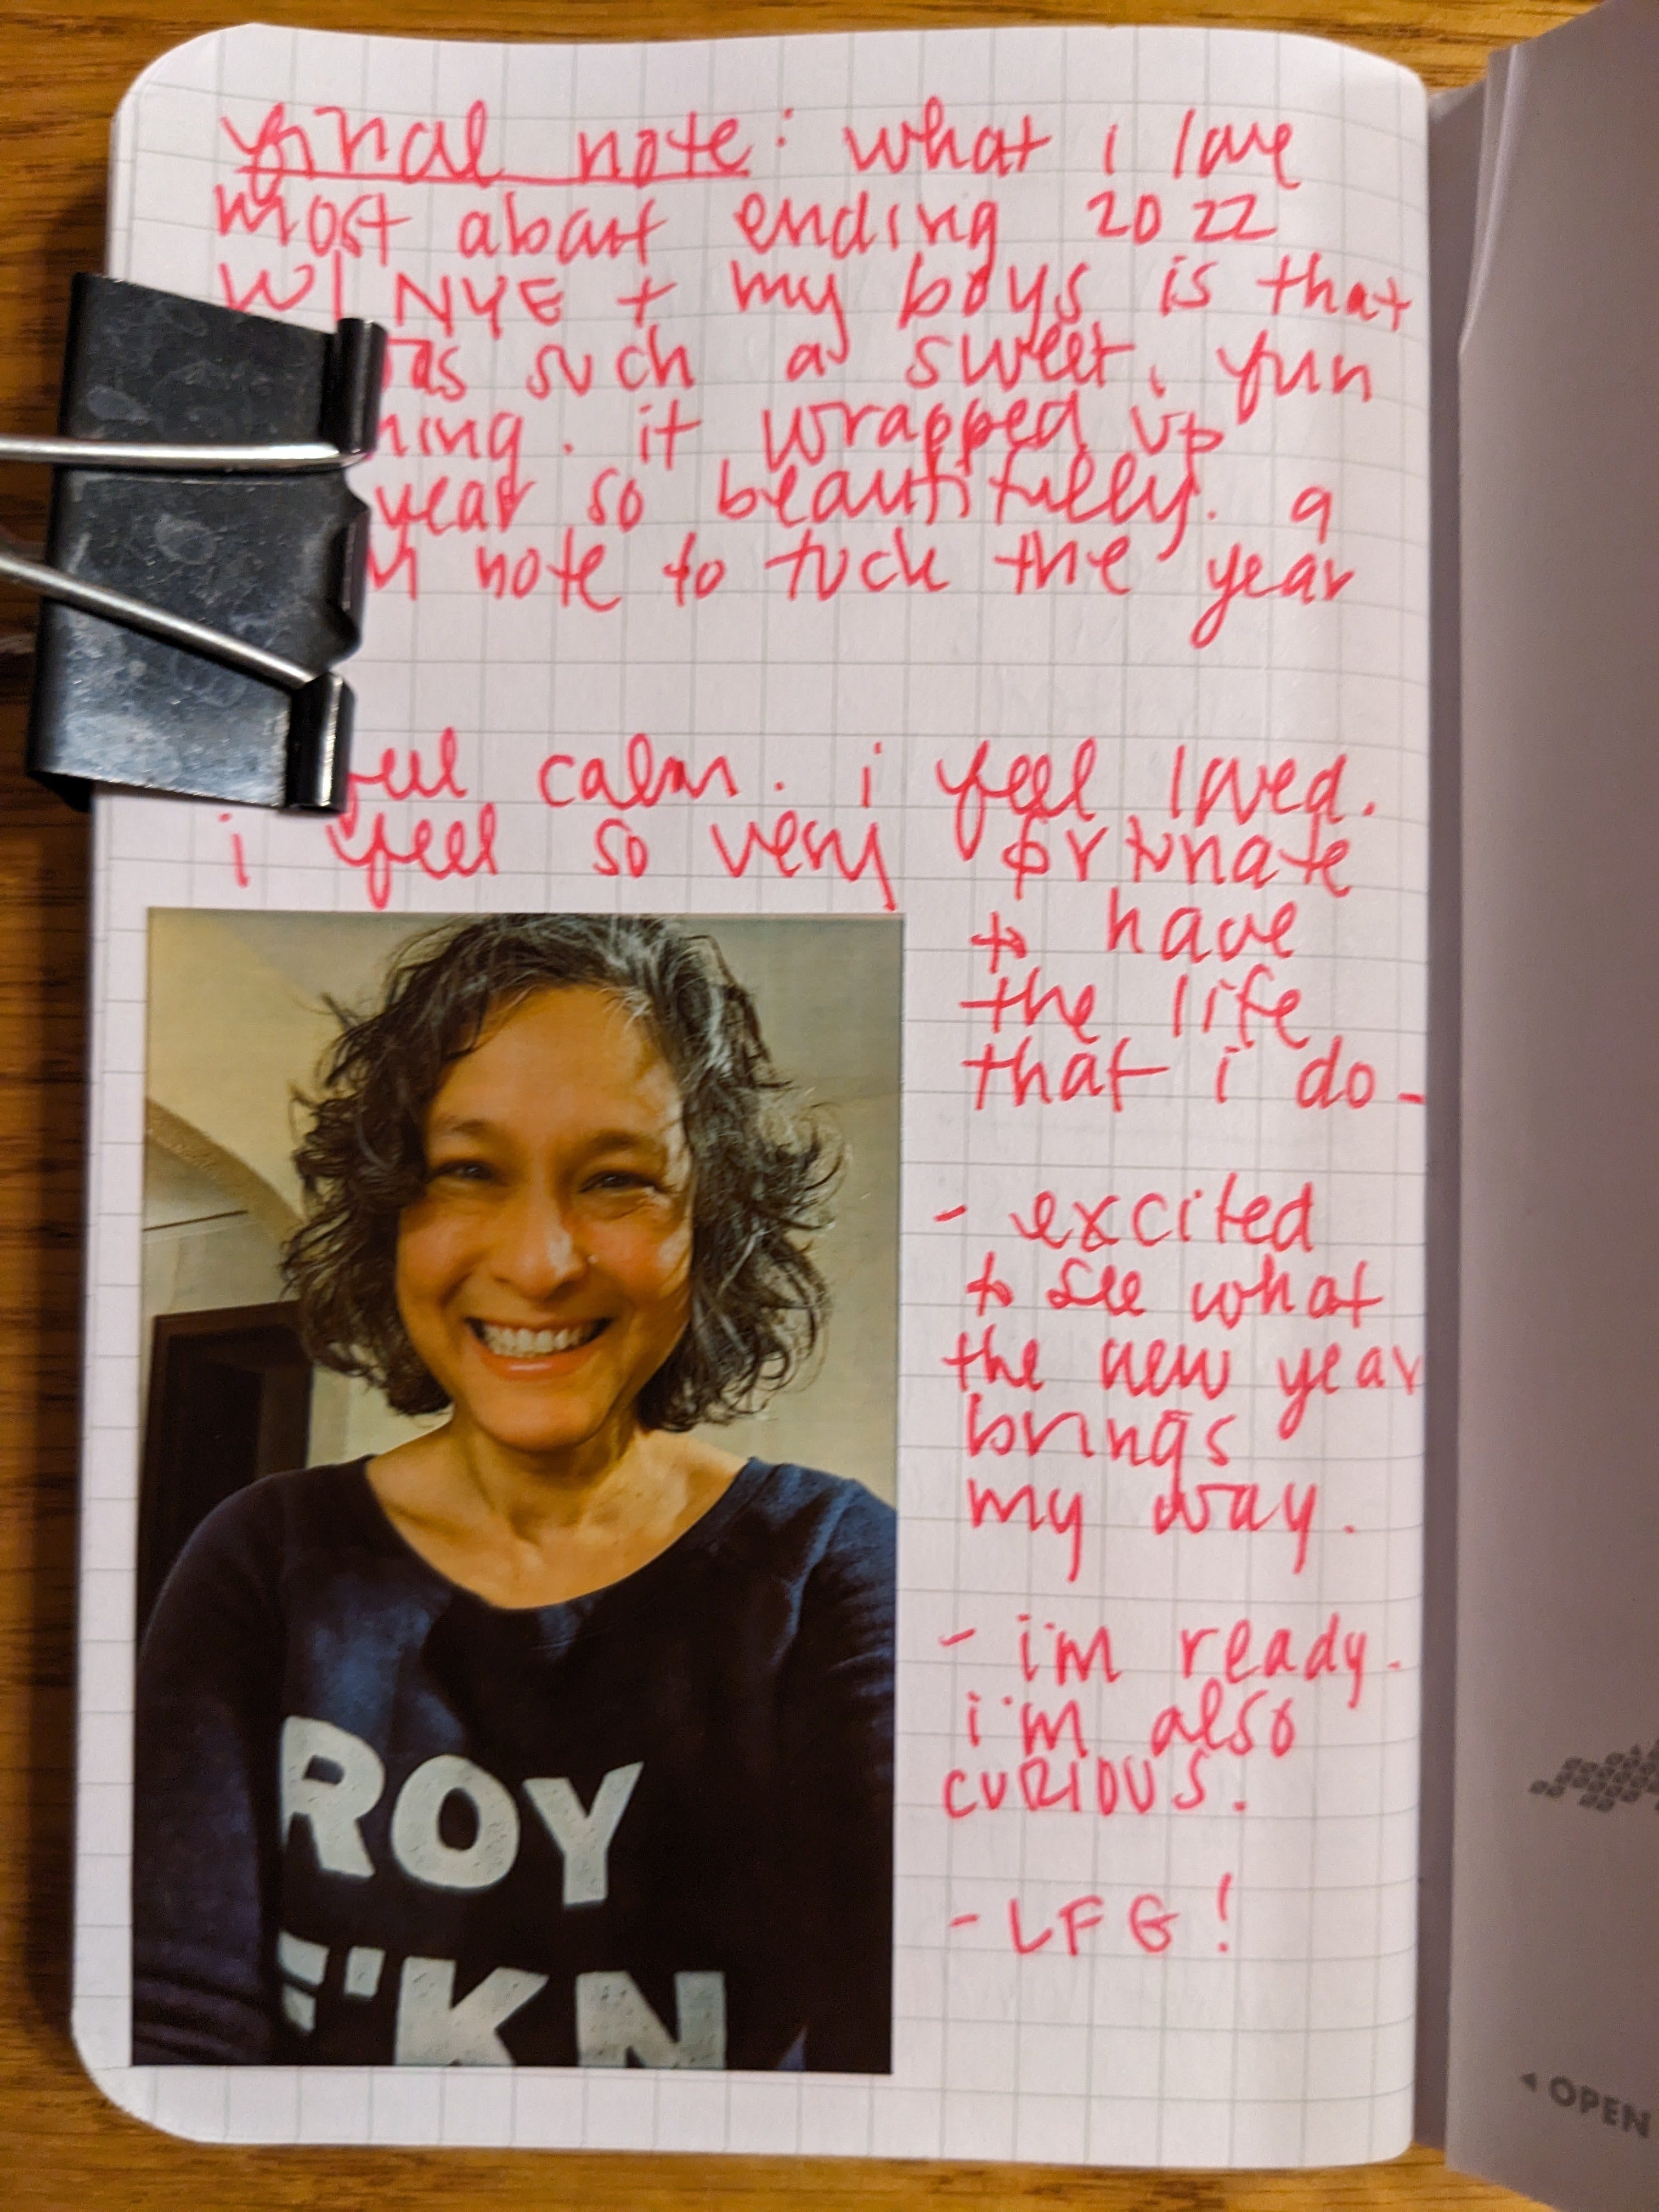 final note: what i love
most about ending 2022
w/ NYE + my boys is that
as such a sweet, fun
ning. it wrapped up
year so beautifully. a
note to tuck the year
feel calm. i feel loved.
i feel so very fortunate
to have
the life
that i do -
- excited
to see what
the new year
brings
my way.
- i'm ready.
i'm also
CURIOUS.
- LFG!
ROY
F'KN
◂ OPEN